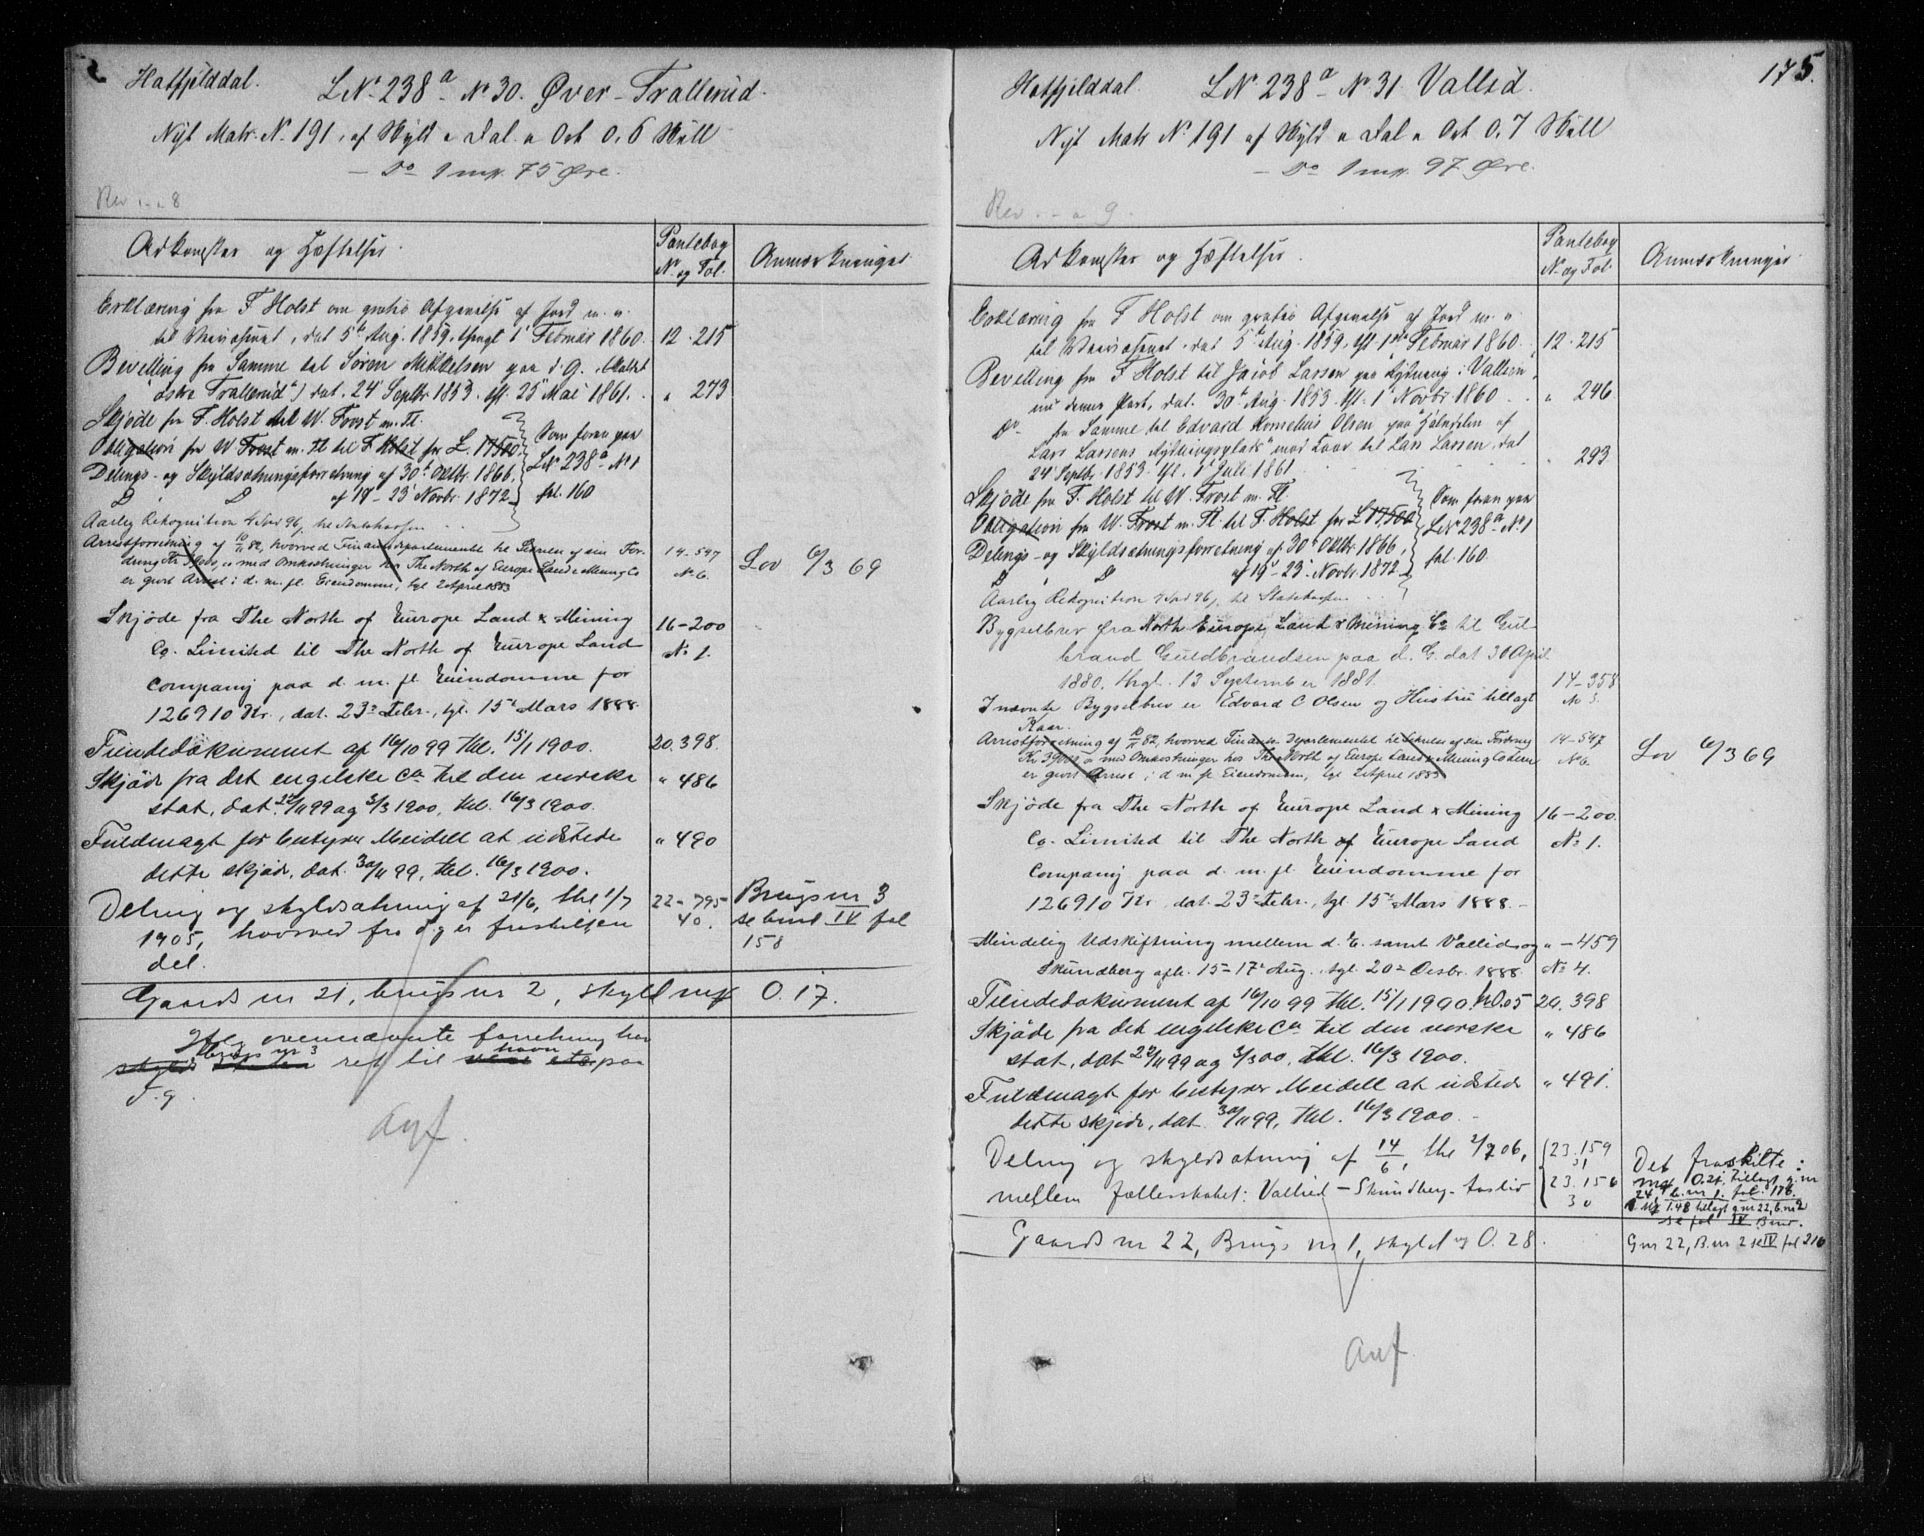 Hatfjelddal. LNr 238a No 30. Øver-Trallerud.
Nyt Matr. No 191, af Skyld " Dal. " Ort 0,6 Skill
- Do 1 mk. 75 Øre.
Rev . - . 8
Adkomster og Hæftelser.
Pantebog
No og Fol.
Anmærkninger
Erklæring fra F Holst om gratis Afgivelse af Jord m. v.
til Veivæsenet, dat 5te Aug. 1859, thingl 1 Februar 1860. 12 . 215
Bevilling fra Samme til Sören Mikkelsen paa d. G. (kaldet
östre Trallerud") dat. 24 Septbr 1853. tgl. 25 Mai 1861. " 273
Skjöde fra F. Holst til W. Frost m. Fl.
Obligation fra W Frost m. Fl til F Holst for £. 17500.
Delings- og Skyldsætningsforretning af 30te Oktbr 1866.
D D af 19-23 Novbr 1872
Som foran paa
LNr 238a No 1
fol. 160
Aarlig Rekognition 4 Spd 96 s, til Statskassen
Arrestforretning af 10/11 82, hvorved Finantsdepartementet til Sikring af sin For- 14-547
dring Kr 3900, " med Omkostninger hos The North of Europe Land & Mining Co No 6. Lov 6/3 69
er gjort Arrest i d. m. fl. Eiendomme, tgl 2 April 1883
Skjöde fra The North of Europe Land & Mining 16-200
Co. Limited til The North of Europe Land No 1.
Company paa d. m. fl. Eiendomme for
126910 Kr., dat. 23de Febr., tgl. 15de Mars 1888.
Tiendedokument af 16/10 99 thl. 15/1 1900. 20.398.
Skjöde fra det engelske Co til den norske " 486
stat, dat. 22/11 99 og 3/3 1900, thl. 16/3 1900.
Fuldmagt for bestyrer Meidell at udstede " 490
dette skjöde, dat. 30/11 99, thl. 16/3 1900.
Deling og skyldsætning af 21/6, thl 1/7 22-795 Brugsnr 3
1905, hvorved fra d. g er fraskiljen 40. se bind IV fol
del. 158
Gaards nr 21, brugs nr 2, skyld mk 0.17.
Ifölg ovennævnte forretning har
brugs nr 3 ret til havn paa
d. g.
Auf.
175.
Hatfjelddal. LNr 238a No 31. Vallid.
Nyt Matr No 191 af Skyld " Dal " Ort 0,7 Skill
- Do 1 mk. 97 Øre.
Rev . - " 9.
Adkomster og Hæftelser.
Pantebog
No og Fol.
Anmærkninger
Erklæring fra F Holst om gratis Afgivelse af Jord m. v.
til Veivæsenet. dat 5te Aug. 1859, tgl. 1ste Februar 1860. 12 . 215
Bevilling fra F Holst til Jacob Larsen paa Rydning i Vallien,
nu denne Part, dat. 30te Aug. 1853 tgl. 1 Novbr 1860 . . " 246
Do fra Samme til Edvard Kornelius Olsen paa Halvdelen af
Lars Larsens Rydningsplads" med Kaar til Lars Larsen, dat
24 Septbr. 1853. tgl. 1 Juli 1861 . . . " 293
Skjöde fra F. Holst til W. Frost m. Fl.
Obligation fra W. Frost m. Fl. til F. Holst for £ 17500
Delings- og Skyldsætningsforretning af 30te Oktbr 1866,
D D af 19-23 Novbr. 1872
Som foran paa
LNr 238a No 1
fol. 160.
Aarlig Rekognition 4 Spd 96 s, til Statskassen
Bygselbrev fra North Europe Land & Mining Co til Gul-
brand Guldbrandsen paa d. G. dat 30 April
1880, thgl. 13 September 1881. 14-358
I nævnte Bygselbrev er Edvard C Olsen og Hustru tillagt No 5.
Kaar.
Arrestforretning af 10/11 82, hvorved Finants Departementet til Sikring af sin Fordring 14-547
Kr 3900, " med Omkostninger hos The North of Europe Land & Mining Co No 6. Lov 6/3 69
er gjort Arrest i d. m. fl. Eiendomme, tgl 2 April 1883
Skjöde fra The North of Europe Land & Mining 16-200.
Co. Limited til The North of Europe Land No 1.
Company paa d. m. fl. Eiendomme for
126910 Kr. dat. 23de Febr., tgl. 15de Mars 1888. -
Mindelig Udskiftning mellem d. E. samt Vallid og " - 459
Skundberg afh. 15-17de Aug., tgl. 20de Decbr. 1888. No 4.
Tiendedokument af 16/10 99 thl. 15/1 1900. 20.398
Skjöde fra det engelske Co til den norske " 486
stat, dat 22/11 99 og 3/3 00, thl. 16/3 1900.
Fuldmagt for bestyrer Meidell at udstede " 491.
dette skjöde, dat. 30/11 99, thl. 16/3 1900. -
Deling og skyldsætning af 14/6, thl 2/7 06, 23.159
31
mellem fællesskabet: Vallied - Skundberg - 23.156
30
Det fraskilte:
mk 0.21 tillagt g. nr
24, b. nr 1. fol. 176.
mk 1.48 tillagt gnr 22, b. nr 2
se fol IV Bind.
Gaards nr 22, Brugs nr 1, skyld mk 0.28. Gnr 22, B. nr 2 se IV fol 216
Auf.